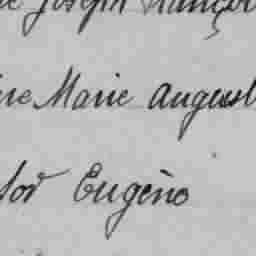 Joseph François
Marie August
Eugène